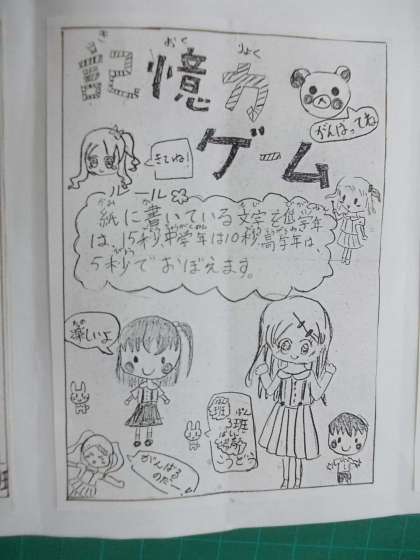 記憶力
きおくりょく
ゲーム
がんばってね
きてね!
ルール
紙に書いている文字を低学年
は、15秒、中学年は10秒、高学年は、
5秒でおぼえます。
楽しいよ
3班
こうどう
がんばる
のだー